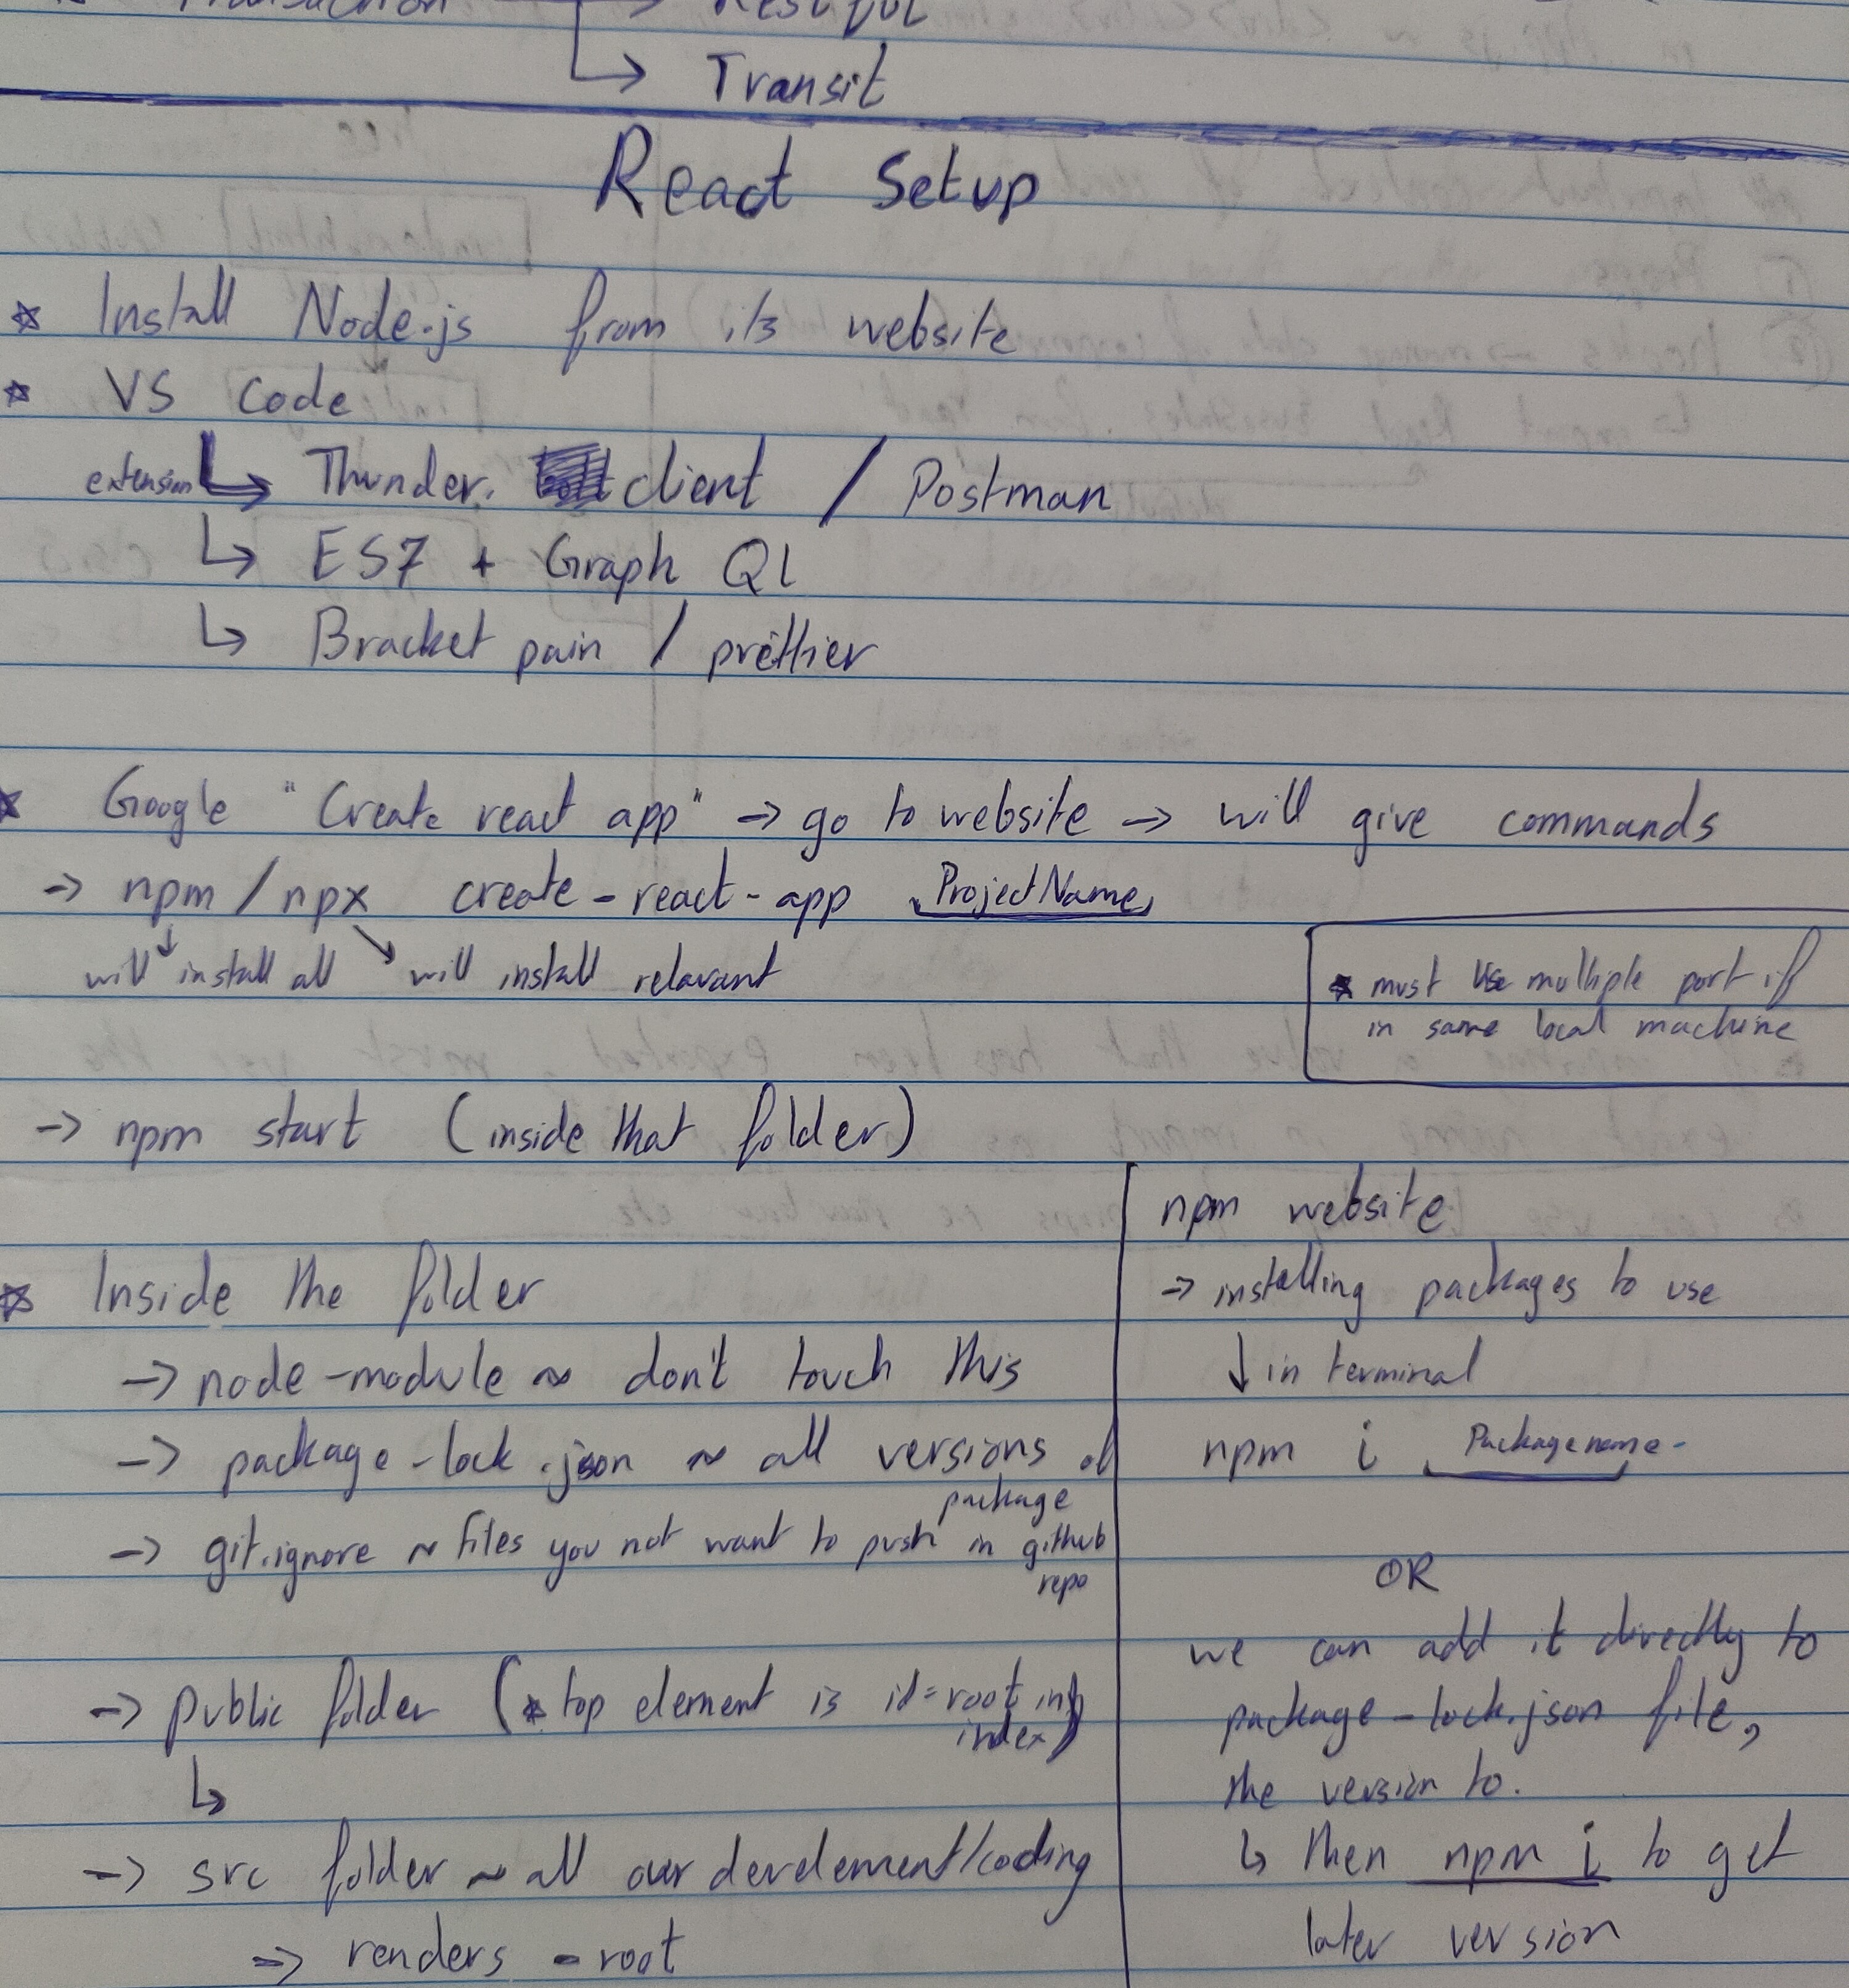 Transit
React Setup
☆ Install Node.js from its website
☆ VS Code
extension ↳ Thunder. client / Postman
↳ ES7 + Graph QL
↳ Bracket pain / prettier
☆ Google "Create react app" → go to website → will give commands
→ npm / npx create-react-app ProjectName
will install all will install relavant
☆ must use multiple port if
in same local machine
→ npm start (inside that folder)
☆ Inside the folder
→ node-module ~ don't touch this
→ package-lock.json ~ all versions of
package
→ git.ignore ~ files you not want to push in github
repo
→ public folder (☆ top element is id=root in
index)
↳
→ src folder ~ all our develement/coding
⇒ renders - root
npm website
→ installing packages to use
↓ in terminal
npm i Packagename
OR
we can add it directly to
package-lock.json file,
the version to.
↳ then npm i to get
later version